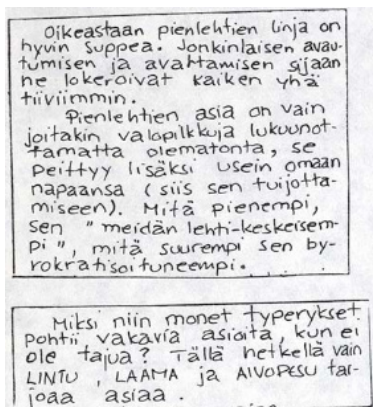 Oikeastaan pienlehtien linja on
hyvin suppea. Jonkinlaisen avau-
tumisen ja avartamisen sijaan
ne lokeroivat kaiken yhä
tiiviimmin.
Pienlehtien asia on vain
joitakin valopilkkuja lukuunot-
tamatta olematonta, se
peittyy lisäksi usein omaan
napaansa (siis sen tuijotta-
miseen). Mitä pienempi,
sen "meidän lehti-keskeisem-
pi", mitä suurempi sen by-
rokratisoituneempi.
Miksi niin monet typerykset
pohtii vakavia asioita, kun ei
ole tajua? Tällä hetkellä vain
LINTU, LAAMA ja AIVOPESU tar-
joaa asiaa.